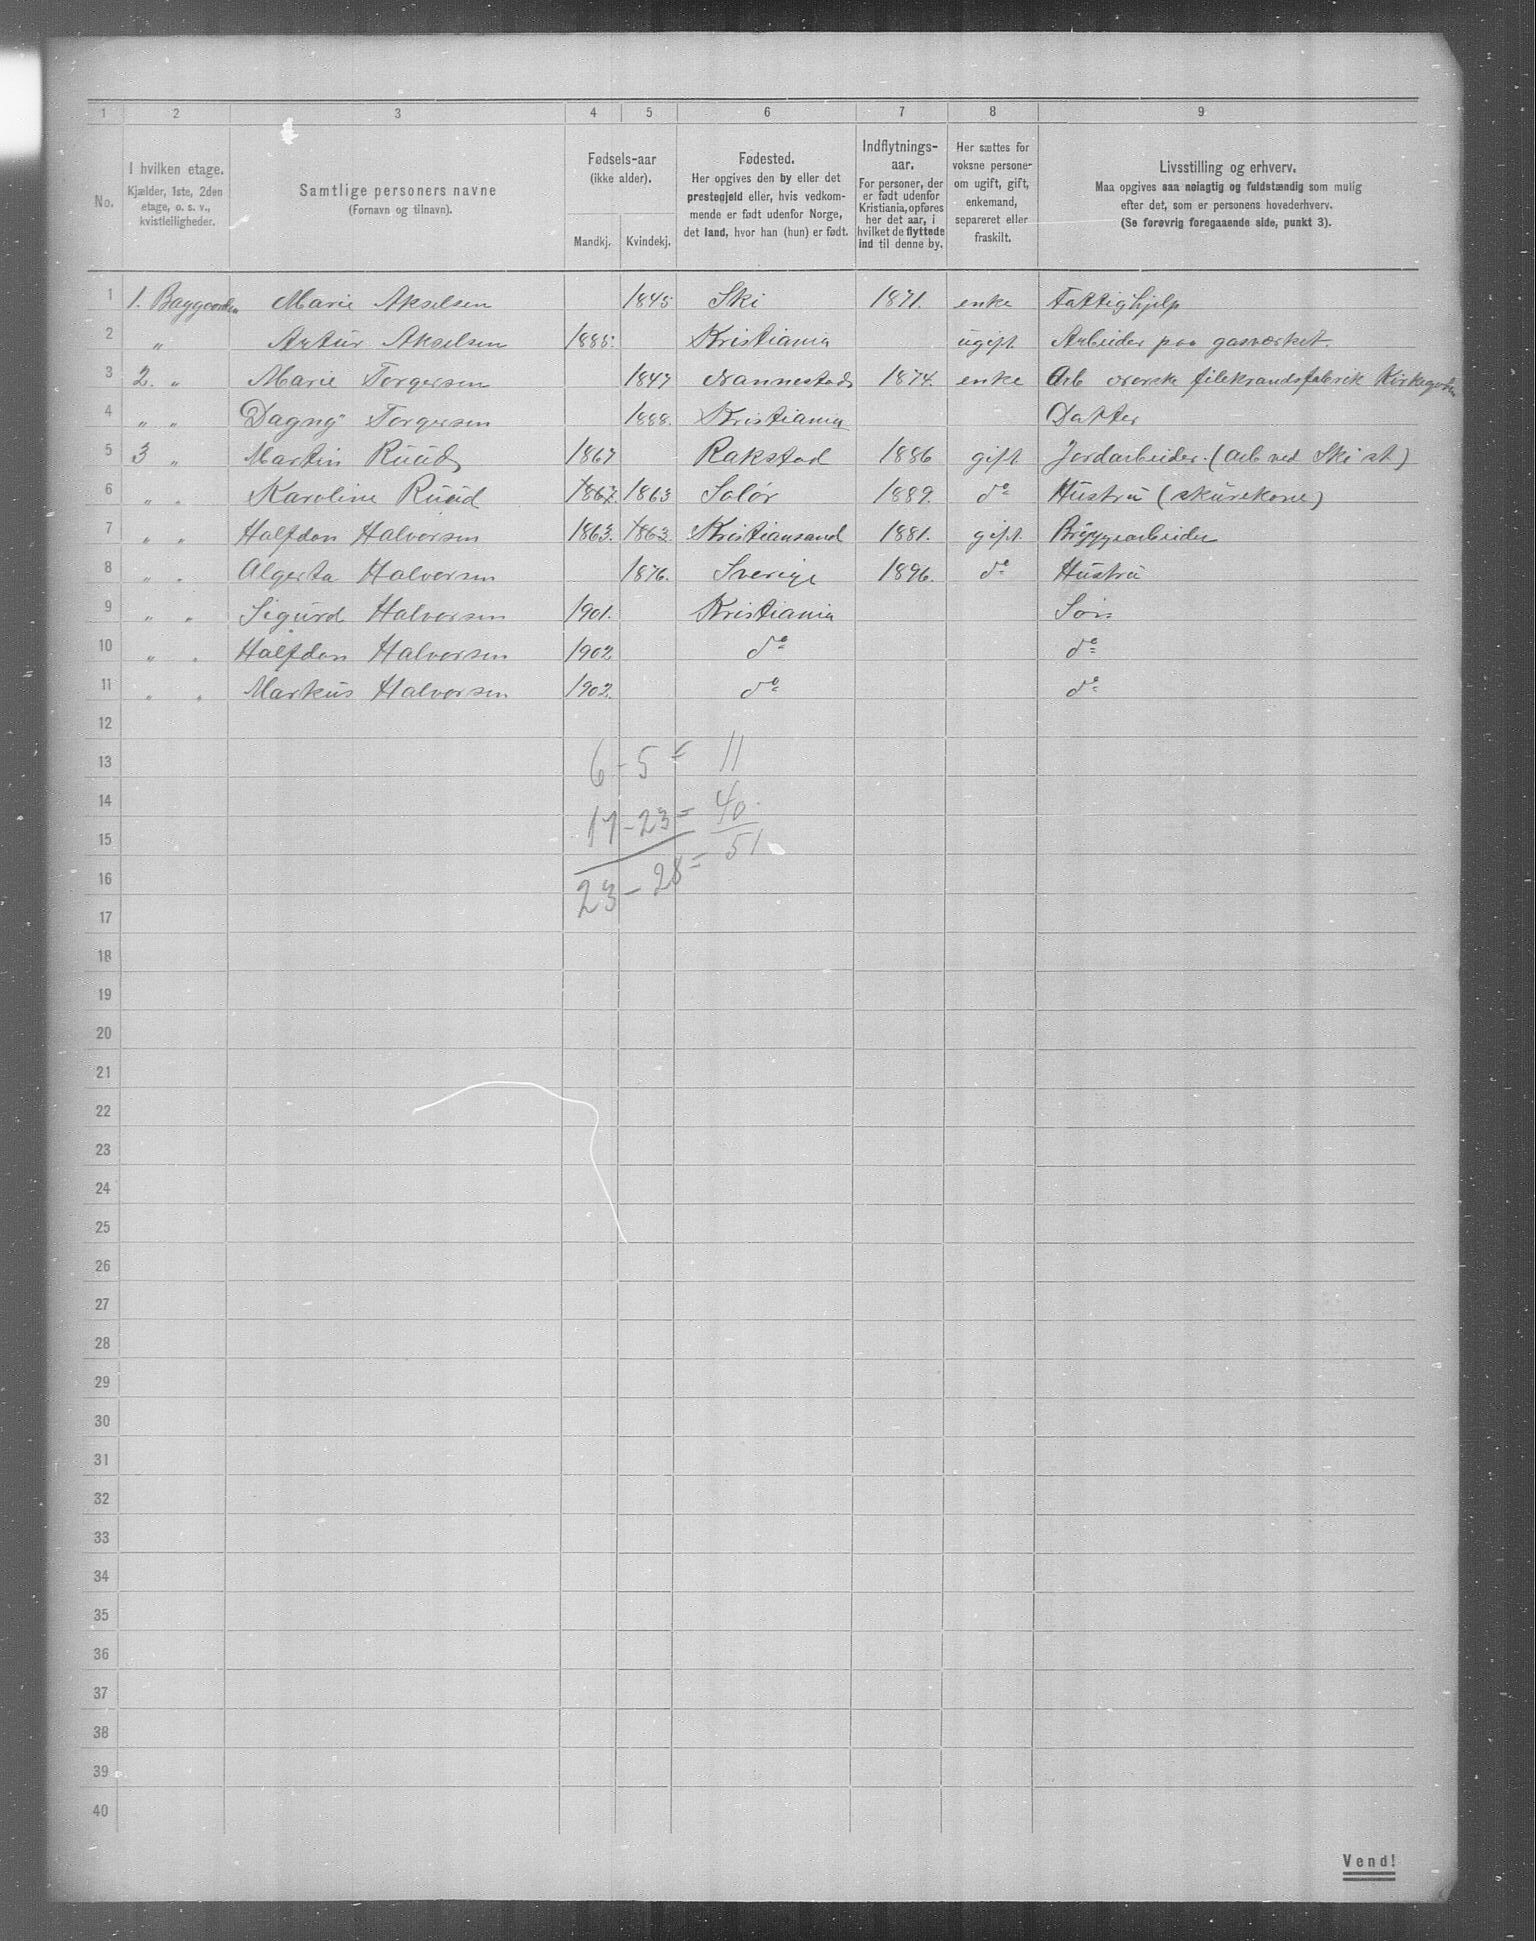 1 2 3 4 5 6 7 8 9
No.
I hvilken etage.
Kjælder, 1ste, 2den
etage, o. s. v.,
kvistleiligheder.
Samtlige personers navne
(Fornavn og tilnavn).
Fødsels-aar
(ikke alder).
Mandkj. Kvindekj.
Fødested.
Her opgives den by eller det
prestegjeld eller, hvis vedkom-
mende er født udenfor Norge,
det land, hvor han (hun) er født.
Indflytnings-
aar.
For personer, der
er født udenfor
Kristiania, opføres
her det aar, i
hvilket de flyttede
ind til denne by.
Her sættes for
voksne persone-
om ugift, gift,
enkemand,
separeret eller
fraskilt.
Livsstilling og erhverv.
Maa opgives saa nøiagtig og fuldstændig som mulig
efter det, som er personens hovederhverv.
(Se forøvrig foregaaende side, punkt 3).
1 1. Baggaarden Marie Akselsen 1845 Ski 1871. enke Fattighjelp
2 " Artur Akselsen 1885. Kristiania ugift Arbeider paa gasværket.
3 2. " Marie Torgersen 1847 Nannestad 1874. enke Arb norske filekrandsfabrik
4 " " Dagny Torgersen 1888. Kristiania Datter
5 3 " Martin Ruud 1867 Rakstad 1886 gift Jordarbeider. (arb ved Ski st)
6 " " Karoline Ruud 1867 1863 Solør 1889. do Hustru (skurekone)
7 " " Halfdan Halvorsen 1863. 1863 Kristiansand 1881. gift. Bryggearbeider
8 " " Algerta Halvorsen 1876. Sverige 1896. do Hustru
9 " " Sigurd Halvorsen 1901. Kristiania Søn
10 " " Halfdan Halvorsen 1902 do do
11 " " Markus Halvorsen 1902. do do
12
13 6 - 5 = 11
14 17 - 23 = 40
15 23 - 28 = 51
16
17
18
19
20
21
22
23
24
25
26
27
28
29
30
31
32
33
34
35
36
37
38
39
40
Vend!